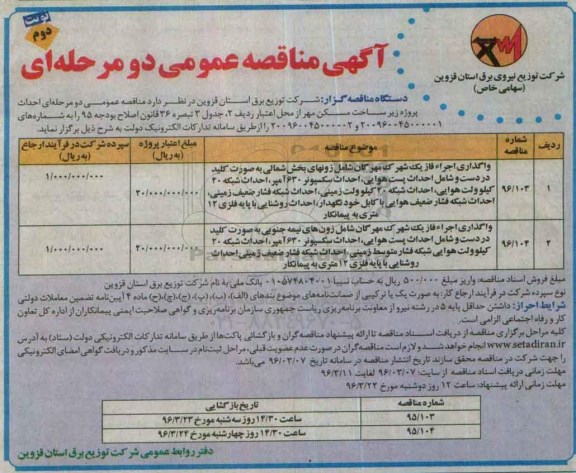 نوبت دوم
آگهی مناقصه عمومی دو مرحله‌ای
شرکت توزیع نیروی برق استان قزوین
(سهامی خاص)
دستگاه مناقصه گزار: شرکت توزیع برق استان قزوین در نظر دارد مناقصه عمومی دو مرحله‌ای احداث
پروژه زیر ساخت مسکن مهر از محل اعتبار ردیف ۲، جدول ۳ تبصره ۳۶ قانون اصلاح بودجه ۹۵ را به شماره‌های
۲۰۰۹۶۰۰۴۵۰۰۰۰۰۱ و ۲۰۰۹۶۰۰۴۵۰۰۰۰۰۲ را از طریق سامانه تدارکات الکترونیک دولت به شرح ذیل برگزار نماید.
ردیف
شماره مناقصه
موضوع مناقصه
مبلغ اعتبار پروژه (به ریال)
سپرده شرکت در فرآیند ارجاع (به ریال)
۱
۹۶/۱۰۳
واگذاری اجراء فاز یک شهرک مهرگان شامل زونهای بخش شمالی به صورت کلید
در دست و شامل احداث پست هوایی، احداث سکسیونر ۶۳۰ آمپر، احداث شبکه ۲۰
کیلو ولت هوایی، احداث شبکه ۲۰ کیلو ولت زمینی، احداث شبکه فشار ضعیف زمینی،
احداث شبکه فشار ضعیف هوایی با کابل خود نگهدار، احداث روشنایی با پایه فلزی ۱۲
متری به پیمانکار
۲۰/۰۰۰/۰۰۰/۰۰۰
۱/۰۰۰/۰۰۰/۰۰۰
۲
۹۶/۱۰۴
واگذاری اجراء فاز یک شهرک مهرگان شامل زون های نیمه جنوبی به صورت کلید
در دست و شامل احداث پست هوایی، احداث سکسیونر ۶۳۰ آمپر، احداث شبکه ۲۰
کیلو ولت هوایی شبکه فشار متوسط زمینی، احداث شبکه فشار ضعیف زمینی احداث
روشنایی با پایه فلزی ۱۲ متری به پیمانکار
۲۰/۰۰۰/۰۰۰/۰۰۰
۱/۰۰۰/۰۰۰/۰۰۰
مبلغ فروش اسناد مناقصه: واریز مبلغ ۵۰۰/۰۰۰ ریال به حساب سیبا ۰۱۰۵۷۴۸۰۴۰۰۱ بانک ملی به نام شرکت توزیع برق استان قزوین
نوع سپرده شرکت در فرآیند ارجاع کار: به صورت یک یا ترکیبی از ضمانت‌نامه‌های موضوع بندهای (الف)، (ب)، (پ)، (ج)، (چ)، (ح) ماده ۴ آیین‌نامه تضمین معاملات دولتی
شرایط احراز: داشتن حداقل پایه ۵ در رشته نیرو از معاونت برنامه‌ریزی ریاست جمهوری سازمان برنامه‌ریزی و گواهی صلاحیت ایمنی پیمانکاران از اداره کل تعاون
کار و رفاه اجتماعی الزامی است.
کلیه مراحل برگزاری مناقصه از دریافت اسناد مناقصه تا ارائه پیشنهاد مناقصه‌گران و بازگشائی پاکت‌ها از طریق سامانه تدارکات الکترونیکی دولت (ستاد) به آدرس
www.setadiran.ir انجام خواهد شد و لازم است مناقصه‌گران در صورت عدم عضویت قبلی، مراحل ثبت‌نام در سایت مذکور و دریافت گواهی امضای الکترونیکی
را جهت شرکت در مناقصه محقق سازند. تاریخ انتشار مناقصه در سامانه تاریخ ۹۶/۰۳/۰۷ می‌باشد.
مهلت زمانی دریافت اسناد مناقصه از سایت: ۹۶/۰۳/۰۷ لغایت ۹۶/۳/۱۱
مهلت زمانی ارائه پیشنهاد: ساعت ۱۲ روز دوشنبه مورخ ۹۶/۳/۲۲
شماره مناقصه
تاریخ بازگشایی
۹۵/۱۰۳
ساعت ۱۴/۳۰ روز سه شنبه مورخ ۹۶/۳/۲۳
۹۵/۱۰۴
ساعت ۱۴/۳۰ روز چهارشنبه مورخ ۹۶/۳/۲۴
دفتر روابط عمومی شرکت توزیع برق استان قزوین